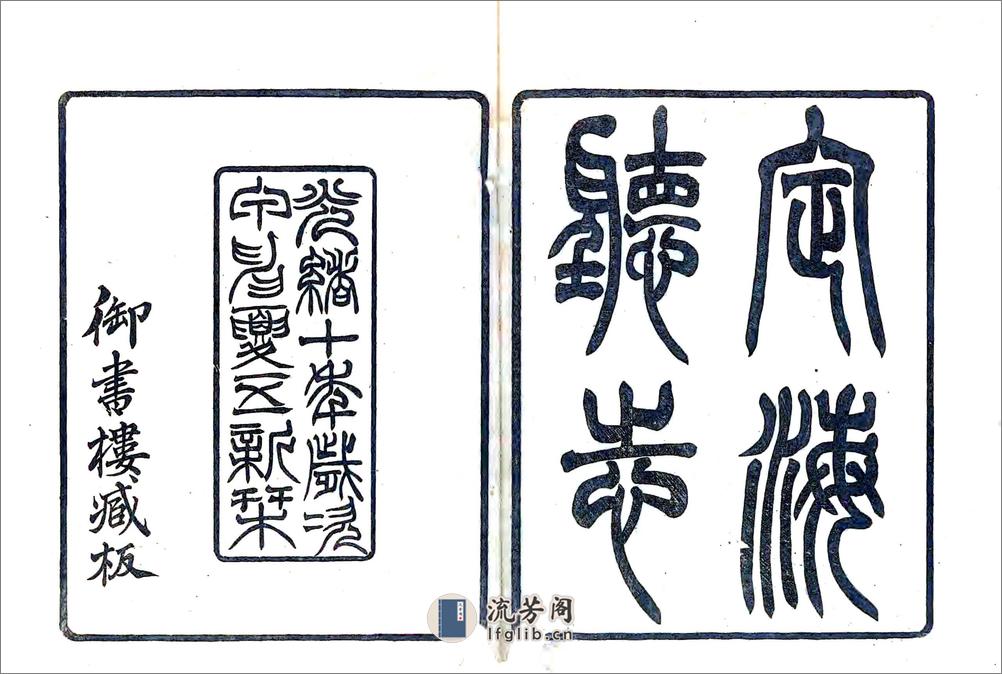 定海
廳志
光緒十年歲次
甲申夏五新栞
御書樓臧板
流芳阁
lfglib.cn